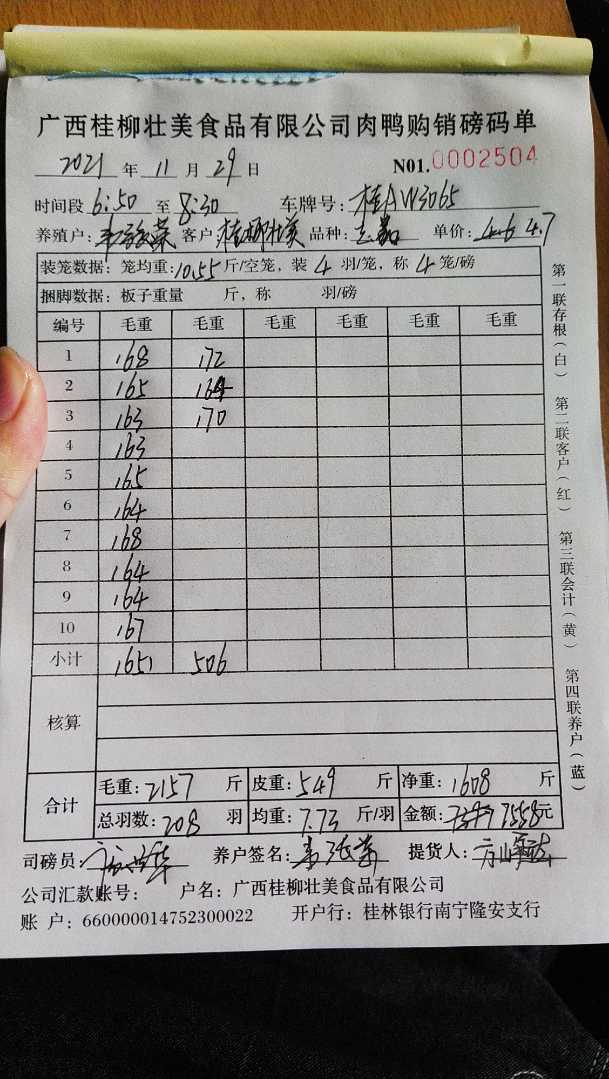 广西桂柳壮美食品有限公司肉鸭购销磅码单
2021 年 11 月 29 日 N01. 0002504
时间段 6:50 至 8:30 车牌号: 桂AW3065
养殖户: 客户 桂柳壮美 品种: 单价: 4.6 4.7
装笼数据: 笼均重: 10.55 斤/空笼, 装 4 羽/笼, 称 4 笼/磅
捆脚数据: 板子重量 斤, 称 羽/磅
编号 毛重 毛重 毛重 毛重 毛重 毛重
1 168 172
2 165 164
3 163 170
4 163
5 165
6 164
7 168
8 164
9 164
10 167
小计 1651 506
核算
合计 毛重: 2157 斤 皮重: 549 斤 净重: 1608 斤
总羽数: 208 羽 均重: 7.73 斤/羽 金额: 7558元
司磅员: 养户签名: 提货人:
公司汇款账号: 户名: 广西桂柳壮美食品有限公司
账 户: 660000014752300022 开户行: 桂林银行南宁隆安支行
第一联存根(白) 第二联客户(红) 第三联会计(黄) 第四联养户(蓝)